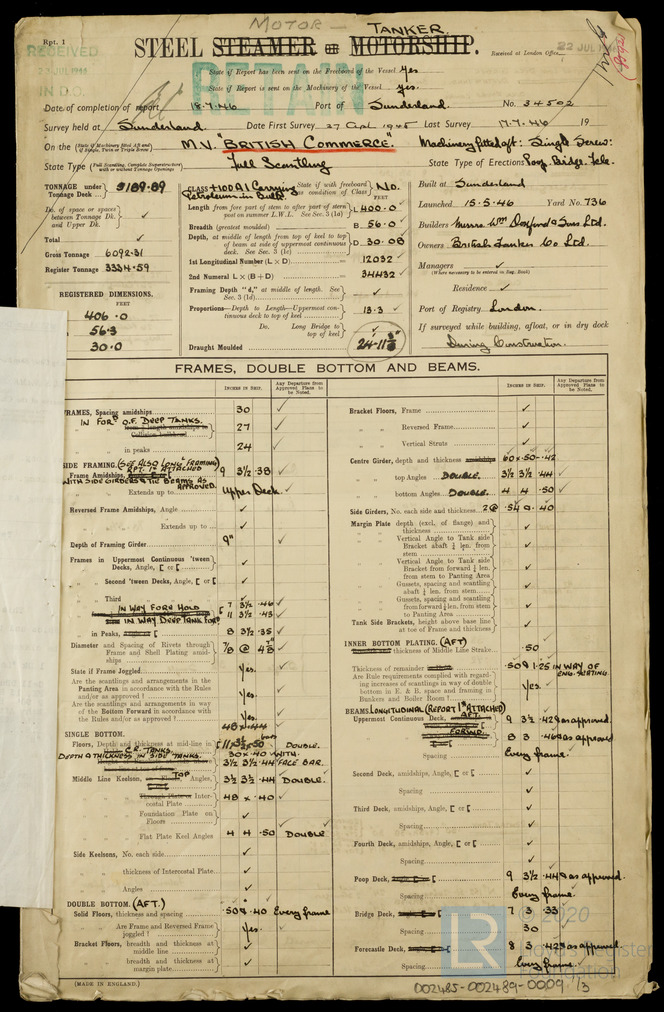 MOTOR — TANKER.
Rpt. 1
STEEL STEAMER OR MOTORSHIP.
Received at London Office 22 JUL 1946
RECEIVED
23 JUL 1946
IN D.O.
RETAIN
State if Report has been sent on the Freeboard of the Vessel Yes
State if Report is sent on the Machinery of the Vessel Yes.
Date of completion of report 18.7.46 Port of Sunderland. No. 34502
Survey held at Sunderland. Date First Survey 27 April 1945 Last Survey 17.7.46 19
On the (State if Machinery fitted Aft and if Single, Twin or Triple Screw) M.V. "BRITISH COMMERCE." Machinery fitted aft: Single Screw:
State Type (Full Scantling, Complete Superstructure with or without Tonnage Openings) Full Scantling State Type of Erections Poop, Bridge, Fcle.
TONNAGE under Tonnage Deck 5189.89
Do. of space or spaces between Tonnage Dk. and Upper Dk. ✓
Total ✓
Gross Tonnage 6092.31
Register Tonnage 3334.59
REGISTERED DIMENSIONS.
FEET
406.0
56.3
30.0
CLASS +100A1 Carrying Petroleum in Bulk. State if with freeboard as condition of Class No.
FEET
Length from fore part of stem to after part of stern post on summer L.W.L. See Sec. 3 (1a) L 400.0
Breadth (greatest moulded) B 56.0
Depth, at middle of length from top of keel to top of beam at side of uppermost continuous deck. See Sec. 3 (1c) D 30.08
1st Longitudinal Number (L × D) 12032
2nd Numeral L × (B + D) 34432
Framing Depth "d," at middle of length. See Sec. 3 (1d) ✓
Proportions—Depth to Length—Uppermost continuous deck to top of keel 13.3
Do. Long Bridge to top of keel ✓
Draught Moulded 24-11 3/4"
Built at Sunderland
Launched 15.5.46 Yard No. 736
Builders Messrs. Wm Doxford & Sons Ltd.
Owners British Tanker Co Ltd.
Managers ✓
(Where necessary to be entered in Reg. Book)
Residence ✓
Port of Registry London.
If surveyed while building, afloat, or in dry dock
During Construction.
FRAMES, DOUBLE BOTTOM AND BEAMS.
INCHES IN SHIP. Any Departure from Approved Plans to be Noted.
FRAMES, Spacing amidships 30 ✓
IN FORD O.F. DEEP TANKS. 27 ✓
in peaks 24 ✓
SIDE FRAMING. (SEE ALSO LONGL FRAMING) RPT. 1* ATTACHED
Frame Amidships, 9 3½ .38 ✓
WITH SIDE GIRDERS & TIE BEAMS AS APPROVED.
Extends up to Upper Deck. ✓
Reversed Frame Amidships, Angle ✓
Extends up to ✓
Depth of Framing Girder 9" ✓
Frames in Uppermost Continuous 'tween Decks, Angle, [ or [ ✓
Second 'tween Decks, Angle, [ or [ ✓
Third ✓
IN WAY FORE HOLD 7 3½ .46
IN WAY DEEP TANK FORD 11 3½ .43
in Peaks, 8 3½ .35 ✓
Diameter and Spacing of Rivets through Frame and Shell Plating amidships 7/8 @ ✓
State if Frame Joggled Yes. ✓
Are the scantlings and arrangements in the Panting Area in accordance with the Rules and/or as approved? Yes. ✓
Are the scantlings and arrangements in way of the Bottom Forward in accordance with the Rules and/or as approved? Yes. ✓
SINGLE BOTTOM.
48 × .44
Floors, Depth and thickness at mid-line in C.R. TANKS. 11 × 3½ × .50 bars DOUBLE.
DEPTH & THICKNESS IN SIDE TANKS. 30 × .40 WITH
3½ 3½ .44 FACE BAR.
Middle Line Keelson, TOP Angles, 3½ 3½ .44 DOUBLE.
Through Plate or Intercostal Plate 48 × .40 ✓
Foundation Plate on Floors ✓
Flat Plate Keel Angles 4 4 .50 DOUBLE
Side Keelsons, No. each side ✓
thickness of Intercostal Plate ✓
Angles ✓
DOUBLE BOTTOM. (AFT.)
Solid Floors, thickness and spacing .50 & .40 Every frame
Are Frame and Reversed Frame joggled? Yes. ✓
Bracket Floors, breadth and thickness at middle line ✓
breadth and thickness at margin plate ✓
(MADE IN ENGLAND.)
INCHES IN SHIP. Any Departure from Approved Plans to be Noted.
Bracket Floors, Frame ✓
Reversed Frame ✓
Vertical Struts ✓
Centre Girder, depth and thickness amidships 60 × .50 - .42
top Angles DOUBLE. 3½ 3½ .44 ✓
bottom Angles DOUBLE. 4 4 .50 ✓
Side Girders, No. each side and thickness 2 @ .54 & .40
Margin Plate depth (excl. of flange) and thickness ✓
Vertical Angle to Tank side Bracket abaft ¼ len. from stem ✓
Vertical Angle to Tank side Bracket from forward ¼ len. from stem to Panting Area ✓
Gussets, spacing and scantling abaft ¼ len. from stem ✓
Gussets, spacing and scantling from forward ¼ len. from stem to Panting Area ✓
Tank Side Brackets, height above base line at toe of Frame and thickness ✓
INNER BOTTOM PLATING. (AFT)
thickness of Middle Line Strake .50
Thickness of remainder .50 & 1.25 IN WAY OF ENG. SEATING.
Are Rule requirements complied with regarding increases of scantlings in way of double bottom in E. & B. space and framing in Bunkers and Boiler Room? Yes. ✓
BEAMS. LONGITUDINAL (REPORT 1* ATTACHED)
Uppermost Continuous Deck, AFT. 9 3½ .42 as approved.
FORWD. 8 3 .46 as approved
Spacing Every frame.
Second Deck, amidships, Angle, [ or [ ✓
Spacing ✓
Third Deck, amidships, Angle, [ or [ ✓
Spacing ✓
Fourth Deck, amidships, Angle, [ or [ ✓
Spacing ✓
Poop Deck, 9 3½ .44 as approved.
Spacing Every frame.
Bridge Deck, 7 3 .33
Spacing 30
Forecastle Deck, 8 3 .42 as approved.
Spacing Every frame.
LR © 2020
Lloyd's Register Foundation
002485-002489-0009 1/3